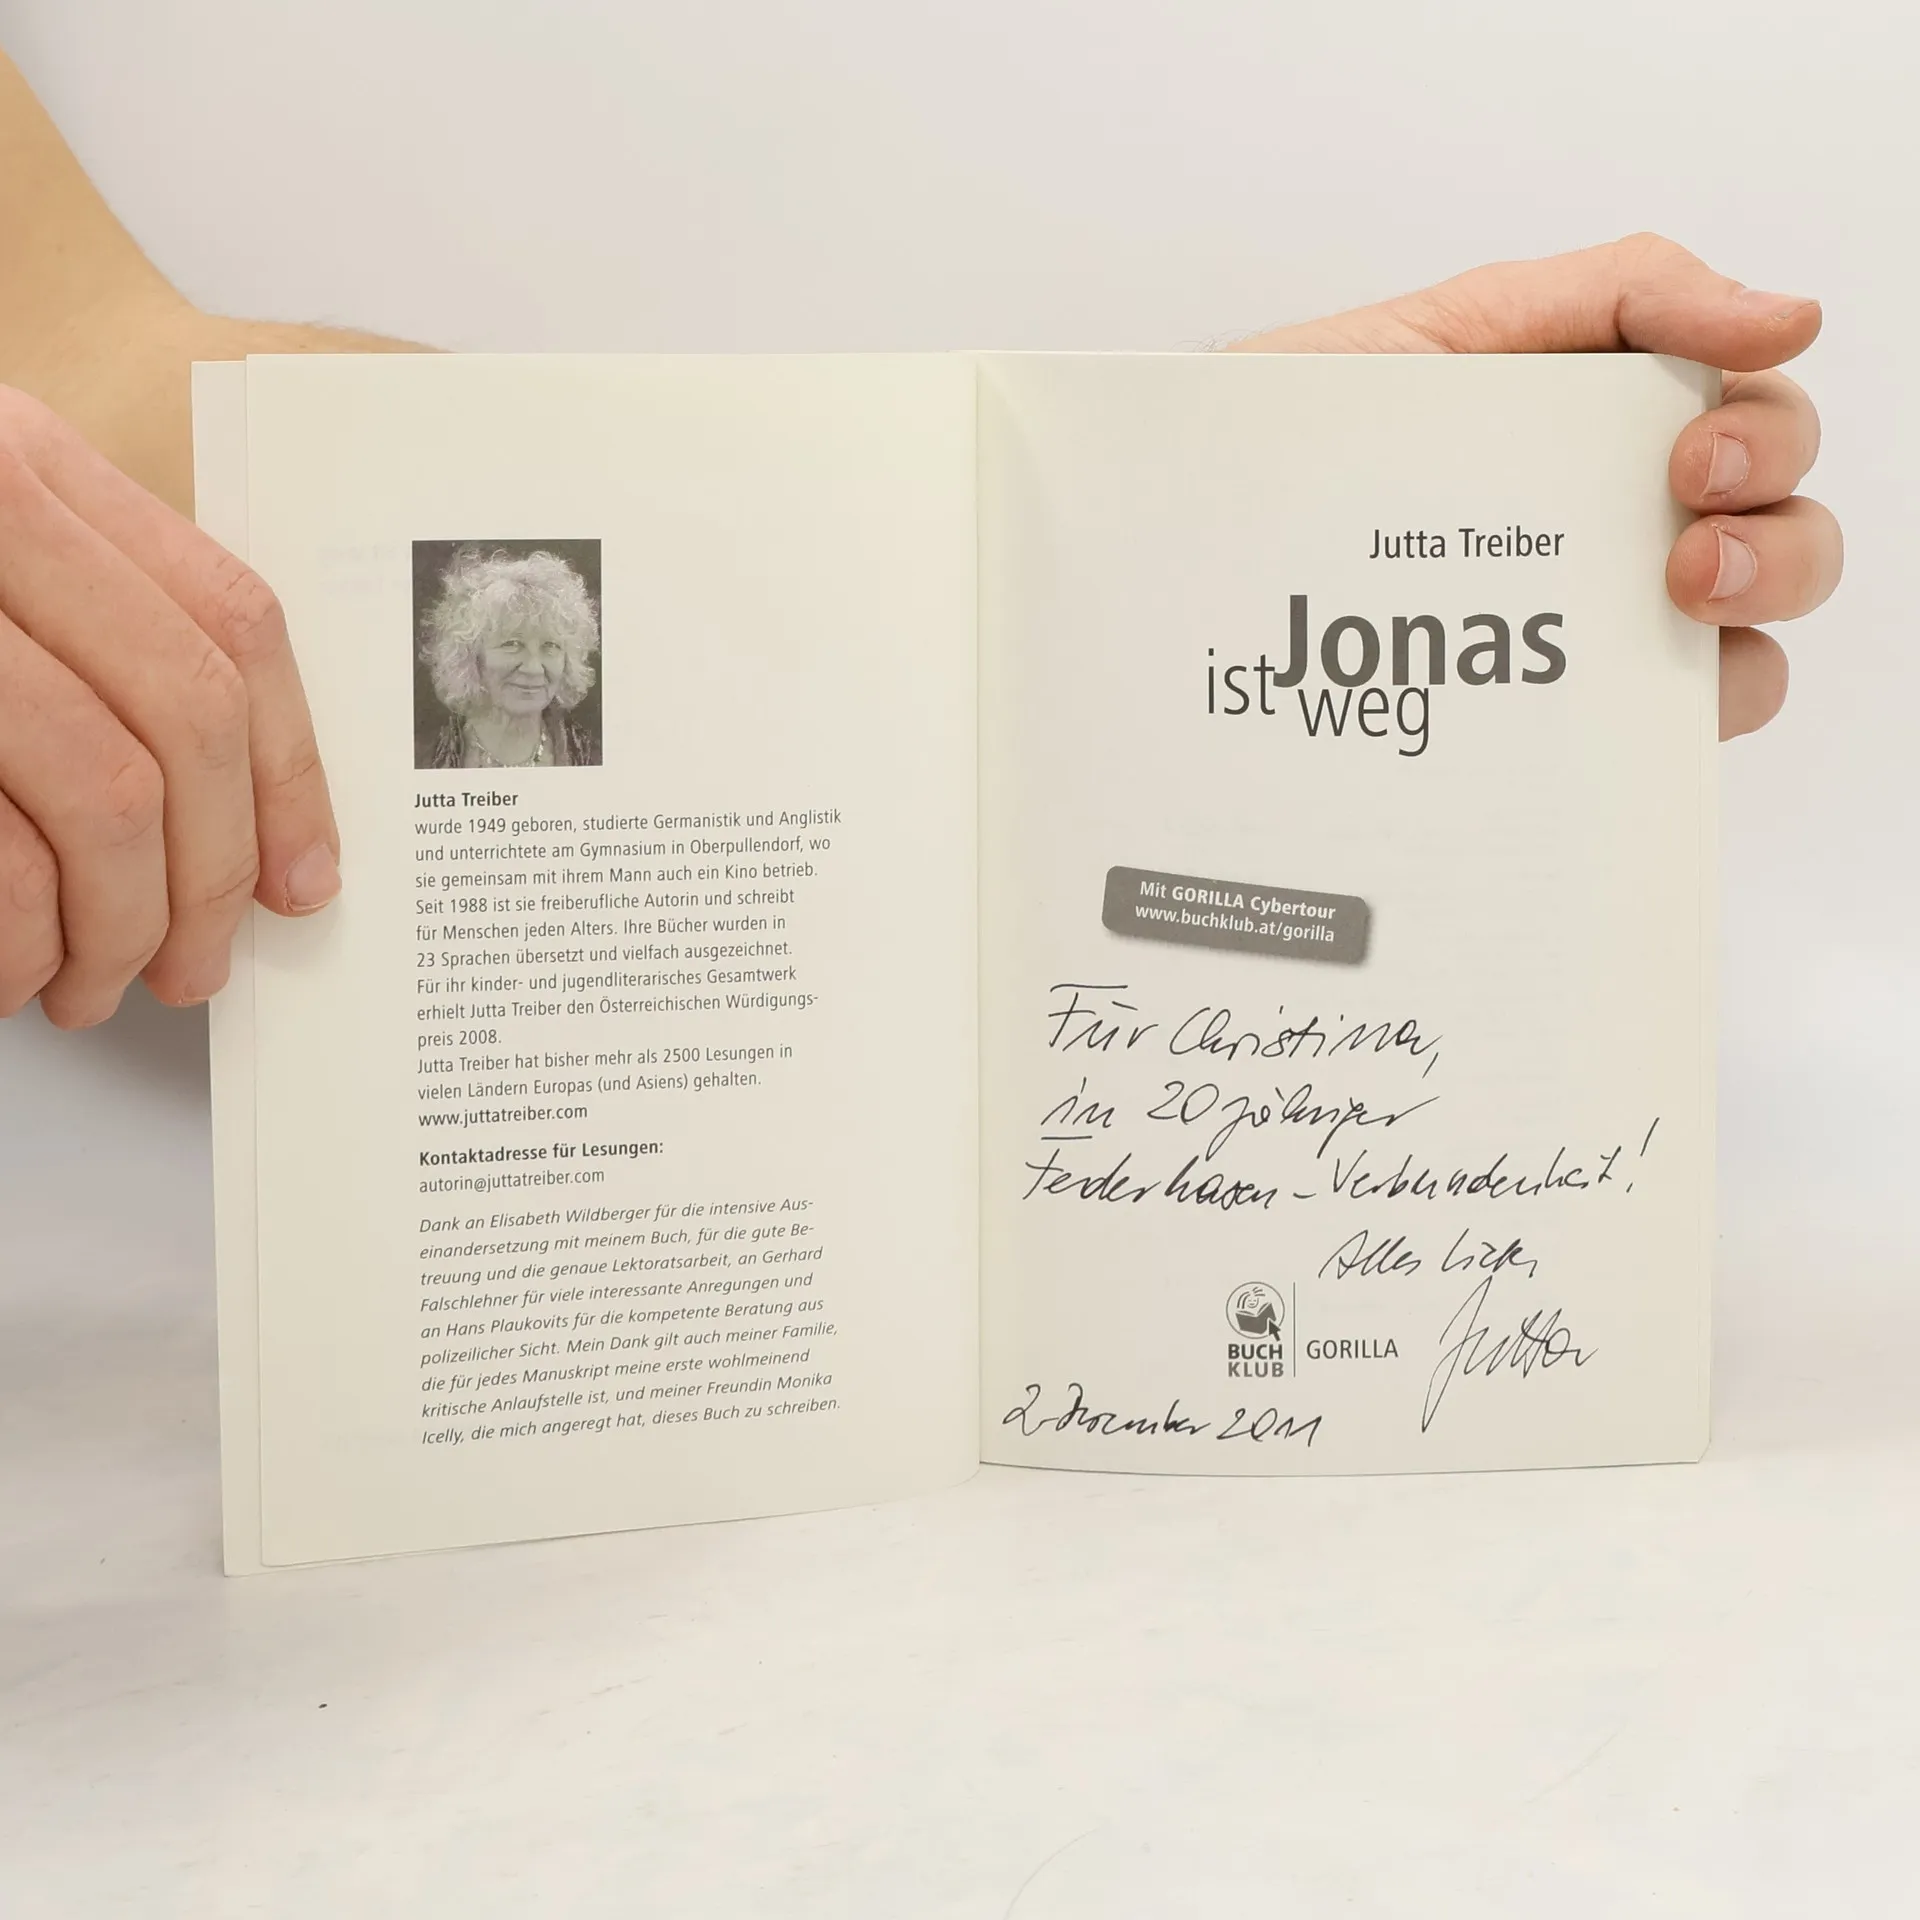 Jutta Treiber
wurde 1949 geboren, studierte Germanistik und Anglistik
und unterrichtete am Gymnasium in Oberpullendorf, wo
sie gemeinsam mit ihrem Mann auch ein Kino betrieb.
Seit 1988 ist sie freiberufliche Autorin und schreibt
für Menschen jeden Alters. Ihre Bücher wurden in
23 Sprachen übersetzt und vielfach ausgezeichnet.
Für ihr kinder- und jugendliterarisches Gesamtwerk
erhielt Jutta Treiber den Österreichischen Würdigungs-
preis 2008.
Jutta Treiber hat bisher mehr als 2500 Lesungen in
vielen Ländern Europas (und Asiens) gehalten.
www.juttatreiber.com
Kontaktadresse für Lesungen:
autorin@juttatreiber.com
Dank an Elisabeth Wildberger für die intensive Aus-
einandersetzung mit meinem Buch, für die gute Be-
treuung und die genaue Lektoratsarbeit, an Gerhard
Falschlehner für viele interessante Anregungen und
an Hans Plaukovits für die kompetente Beratung aus
polizeilicher Sicht. Mein Dank gilt auch meiner Familie,
die für jedes Manuskript meine erste wohlmeinend
kritische Anlaufstelle ist, und meiner Freundin Monika
Icelly, die mich angeregt hat, dieses Buch zu schreiben.
Jutta Treiber
Jonas
ist weg
Mit GORILLA Cybertour
www.buchklub.at/gorilla
Für Christina,
in 20 jähriger
Federhasen-Verbundenheit!
Alles Liebe,
Jutta
BUCH
KLUB
GORILLA
2. Dezember 2011